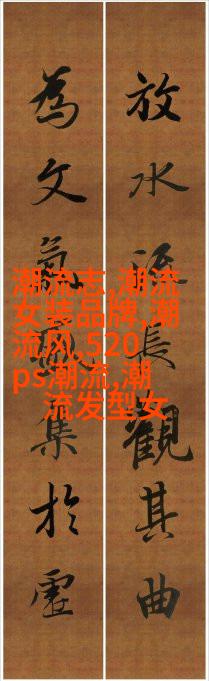 放水長觀其曲
為文氣集於虛
潮流志,潮流
女装品牌,潮
流风,520
ps潮流,潮
流发型女